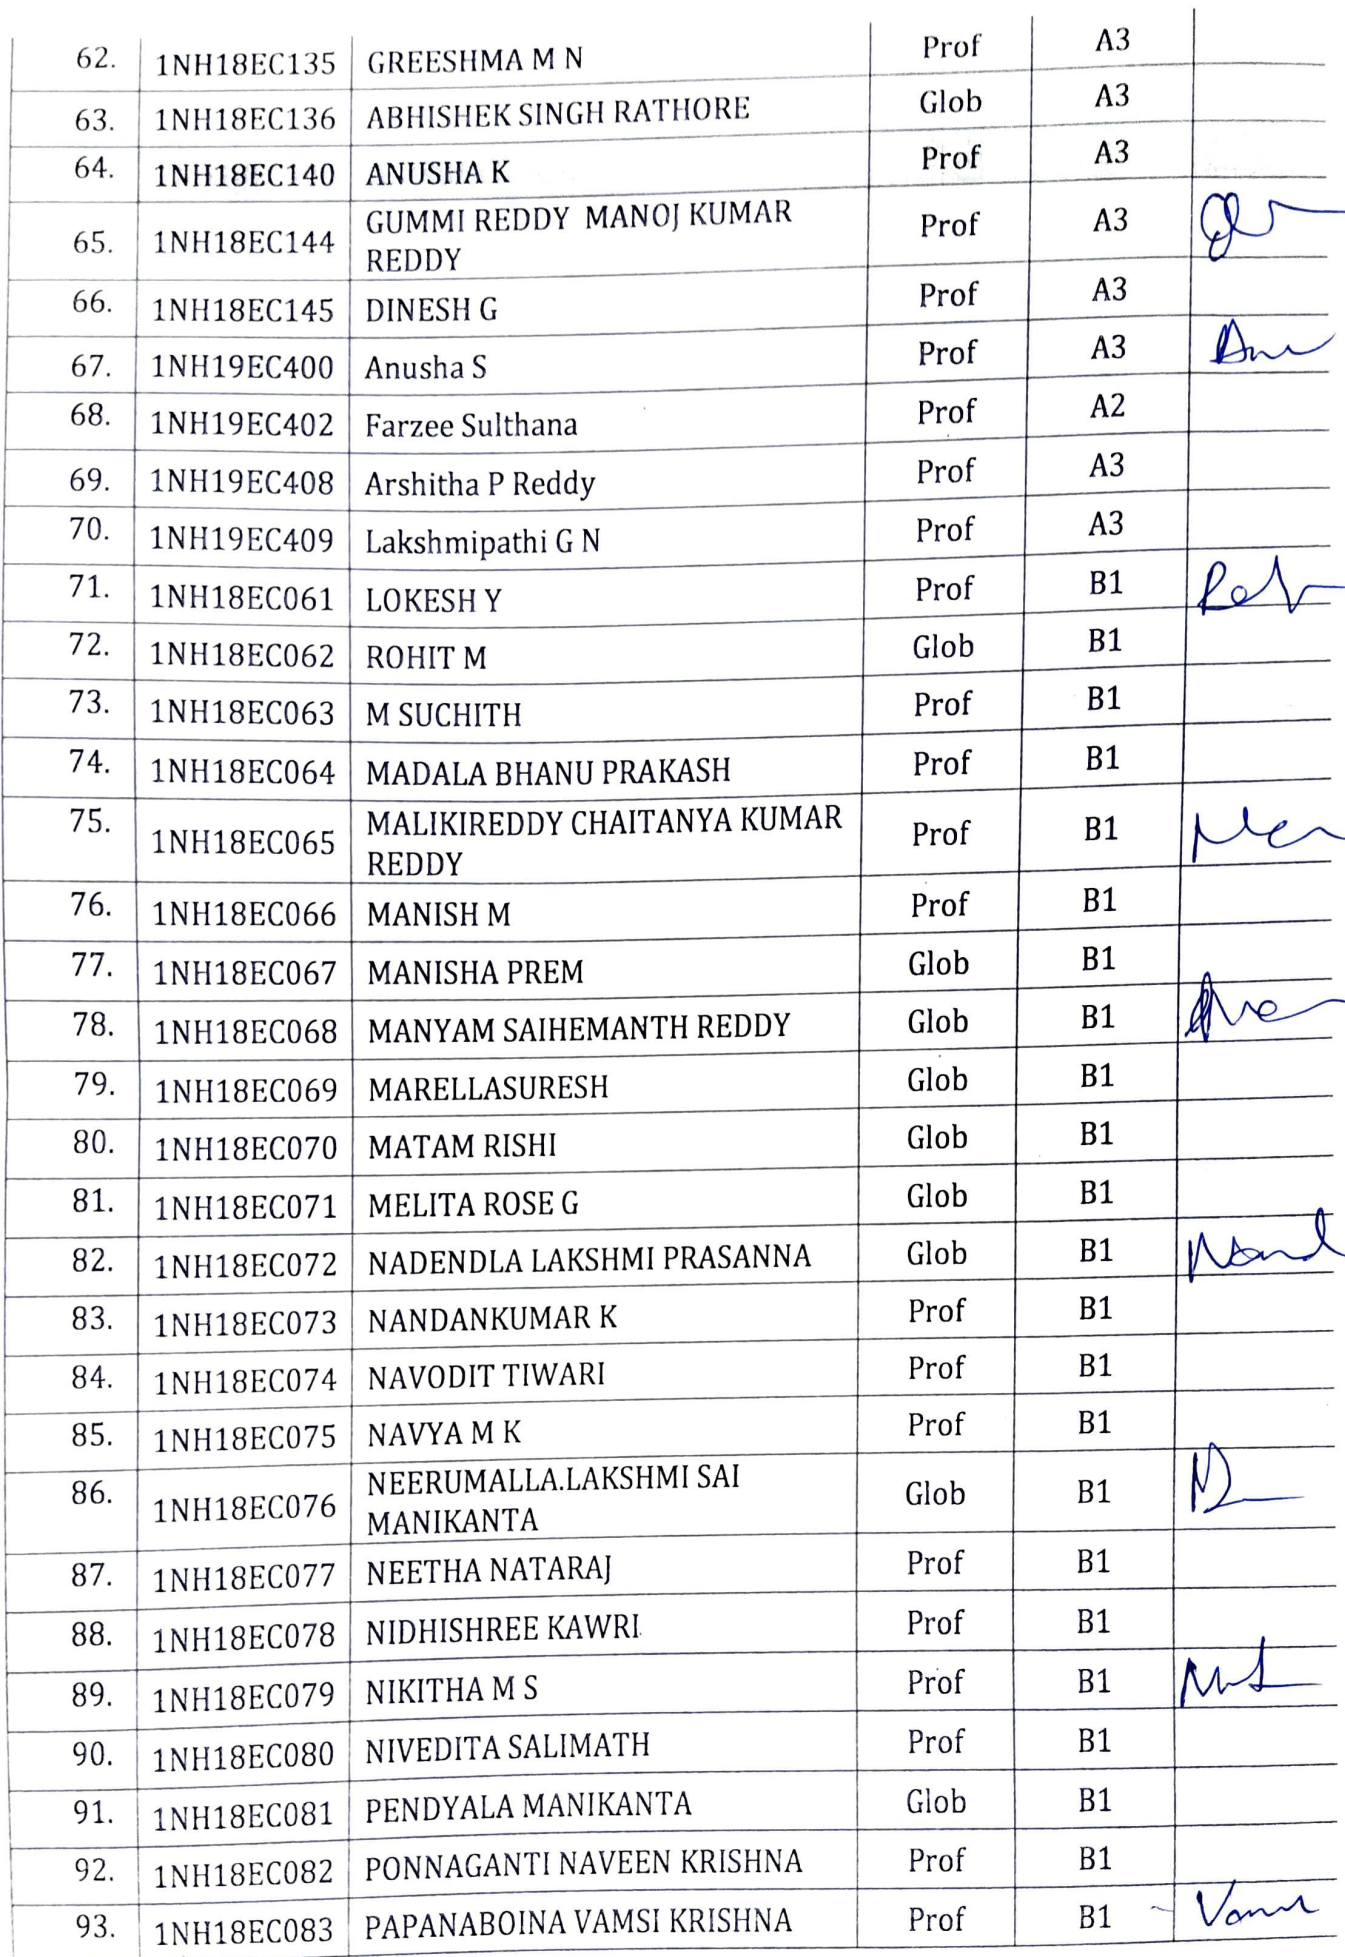 62. 1NH18EC135 GREESHMA M N Prof A3
63. 1NH18EC136 ABHISHEK SINGH RATHORE Glob A3
64. 1NH18EC140 ANUSHA K Prof A3
65. 1NH18EC144 GUMMI REDDY MANOJ KUMAR Prof A3
REDDY
66. 1NH18EC145 DINESH G Prof A3
67. 1NH19EC400 Anusha S Prof A3
68. 1NH19EC402 Farzee Sulthana Prof A2
69. 1NH19EC408 Arshitha P Reddy Prof A3
70. 1NH19EC409 Lakshmipathi G N Prof A3
71. 1NH18EC061 LOKESH Y Prof B1
72. 1NH18EC062 ROHIT M Glob B1
73. 1NH18EC063 M SUCHITH Prof B1
74. 1NH18EC064 MADALA BHANU PRAKASH Prof B1
75. 1NH18EC065 MALIKIREDDY CHAITANYA KUMAR Prof B1
REDDY
76. 1NH18EC066 MANISH M Prof B1
77. 1NH18EC067 MANISHA PREM Glob B1
78. 1NH18EC068 MANYAM SAIHEMANTH REDDY Glob B1
79. 1NH18EC069 MARELLASURESH Glob B1
80. 1NH18EC070 MATAM RISHI Glob B1
81. 1NH18EC071 MELITA ROSE G Glob B1
82. 1NH18EC072 NADENDLA LAKSHMI PRASANNA Glob B1
83. 1NH18EC073 NANDANKUMAR K Prof B1
84. 1NH18EC074 NAVODIT TIWARI Prof B1
85. 1NH18EC075 NAVYA M K Prof B1
86. 1NH18EC076 NEERUMALLA.LAKSHMI SAI Glob B1
MANIKANTA
87. 1NH18EC077 NEETHA NATARAJ Prof B1
88. 1NH18EC078 NIDHISHREE KAWRI Prof B1
89. 1NH18EC079 NIKITHA M S Prof B1
90. 1NH18EC080 NIVEDITA SALIMATH Prof B1
91. 1NH18EC081 PENDYALA MANIKANTA Glob B1
92. 1NH18EC082 PONNAGANTI NAVEEN KRISHNA Prof B1
93. 1NH18EC083 PAPANABOINA VAMSI KRISHNA Prof B1